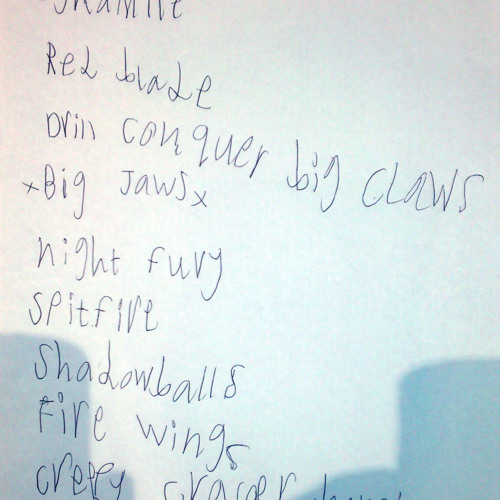 Red blade
Drill conquer big claws
xBig Jawsx
night fury
Spitfire
Shadowballs
Fire wings
creepy